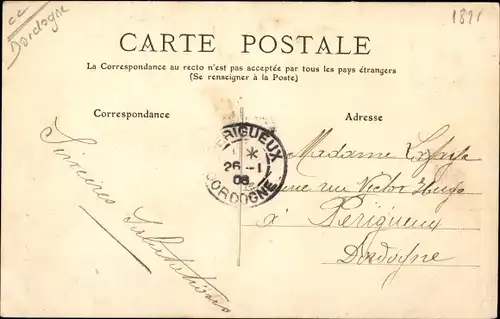 cc
Dordogne
1821
CARTE POSTALE
La Correspondance au recto n'est pas acceptée par tous les pays étrangers
(Se renseigner à la Poste)
Correspondance
Adresse
PERIGUEUX
*
26 -1
08
DORDOGNE
Sincères
Salutations
Madame
rue Victor Hugo
à Périgueux
Dordogne